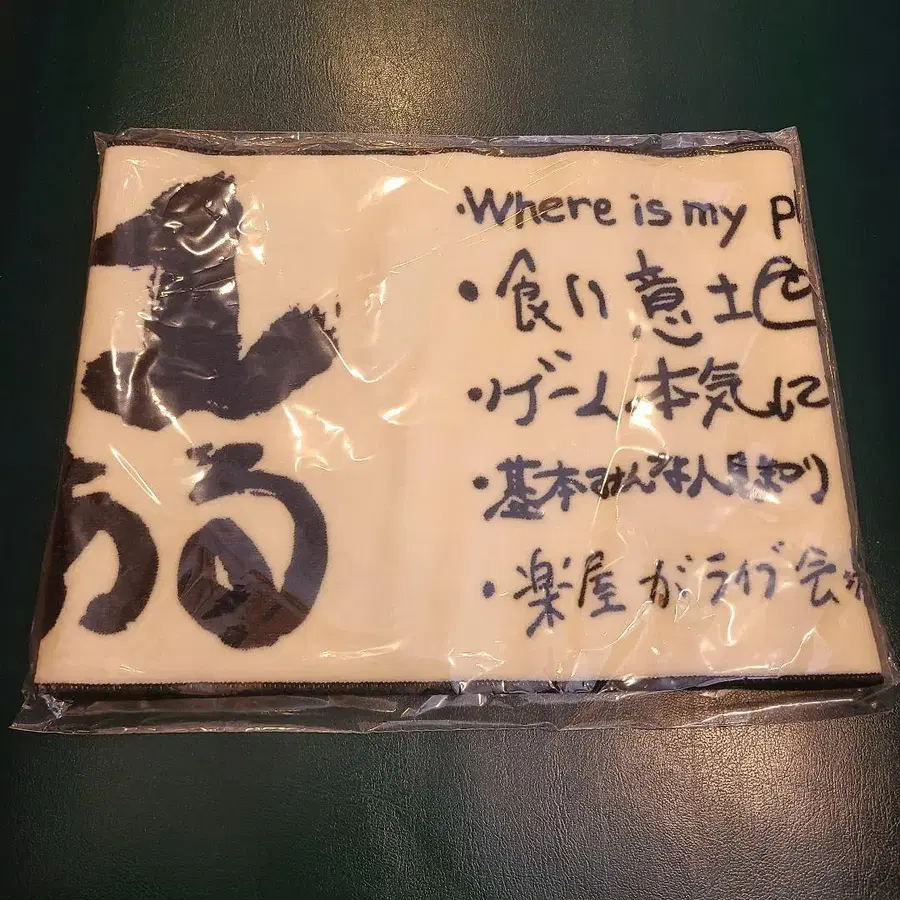 ・Where is my p
・食い意地
・ゲーム本気に
・基本みんな人見知り
・楽屋がライブ会
る